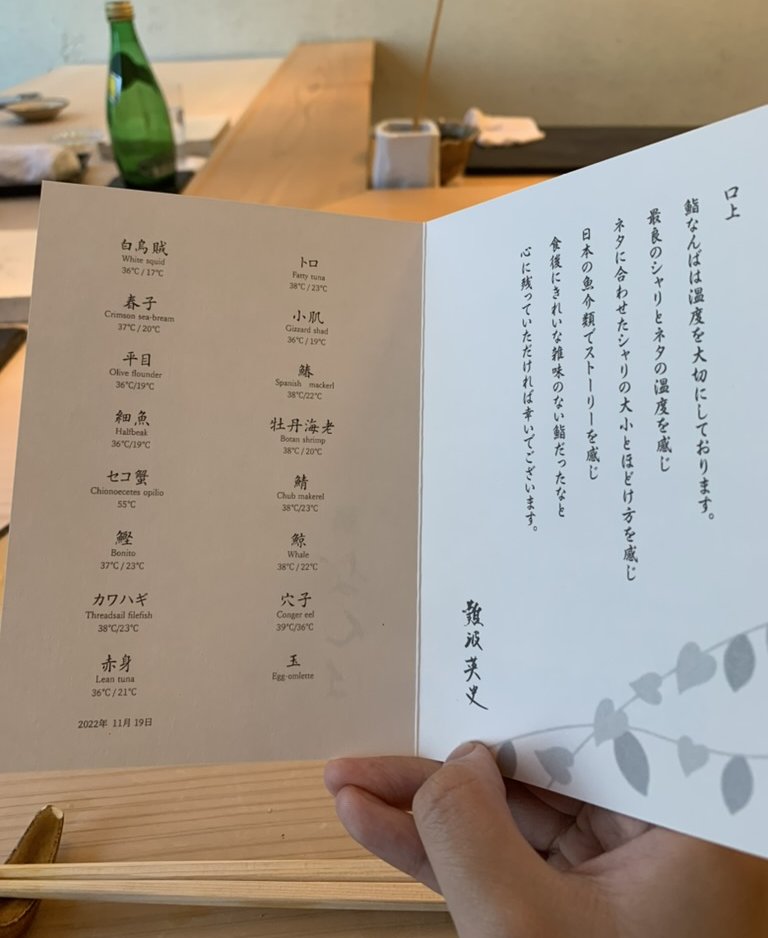 白烏賊
White squid
36℃ / 17℃
春子
Crimson sea-bream
37℃ / 20℃
平目
Olive flounder
36℃/19℃
細魚
Halfbeak
36℃/19℃
セコ蟹
Chionoecetes opilio
55℃
鰹
Bonito
37℃ / 23℃
カワハギ
Threadsail filefish
38℃/23℃
赤身
Lean tuna
36℃ / 21℃
2022年 11月 19日
トロ
Fatty tuna
38℃ / 23℃
小肌
Gizzard shad
36℃ / 19℃
鰆
Spanish mackerl
38℃/22℃
牡丹海老
Botan shrimp
38℃ / 20℃
鯖
Chub makerel
38℃/23℃
鯨
Whale
38℃ / 22℃
穴子
Conger eel
39℃/36℃
玉
Egg-omlette
口上
鮨なんばは温度を大切にしております。
最良のシャリとネタの温度を感じ
ネタに合わせたシャリの大小とほどけ方を感じ
日本の魚介類でストーリーを感じ
食後にきれいな雑味のない鮨だったなと
心に残っていただければ幸いでございます。
難波英史